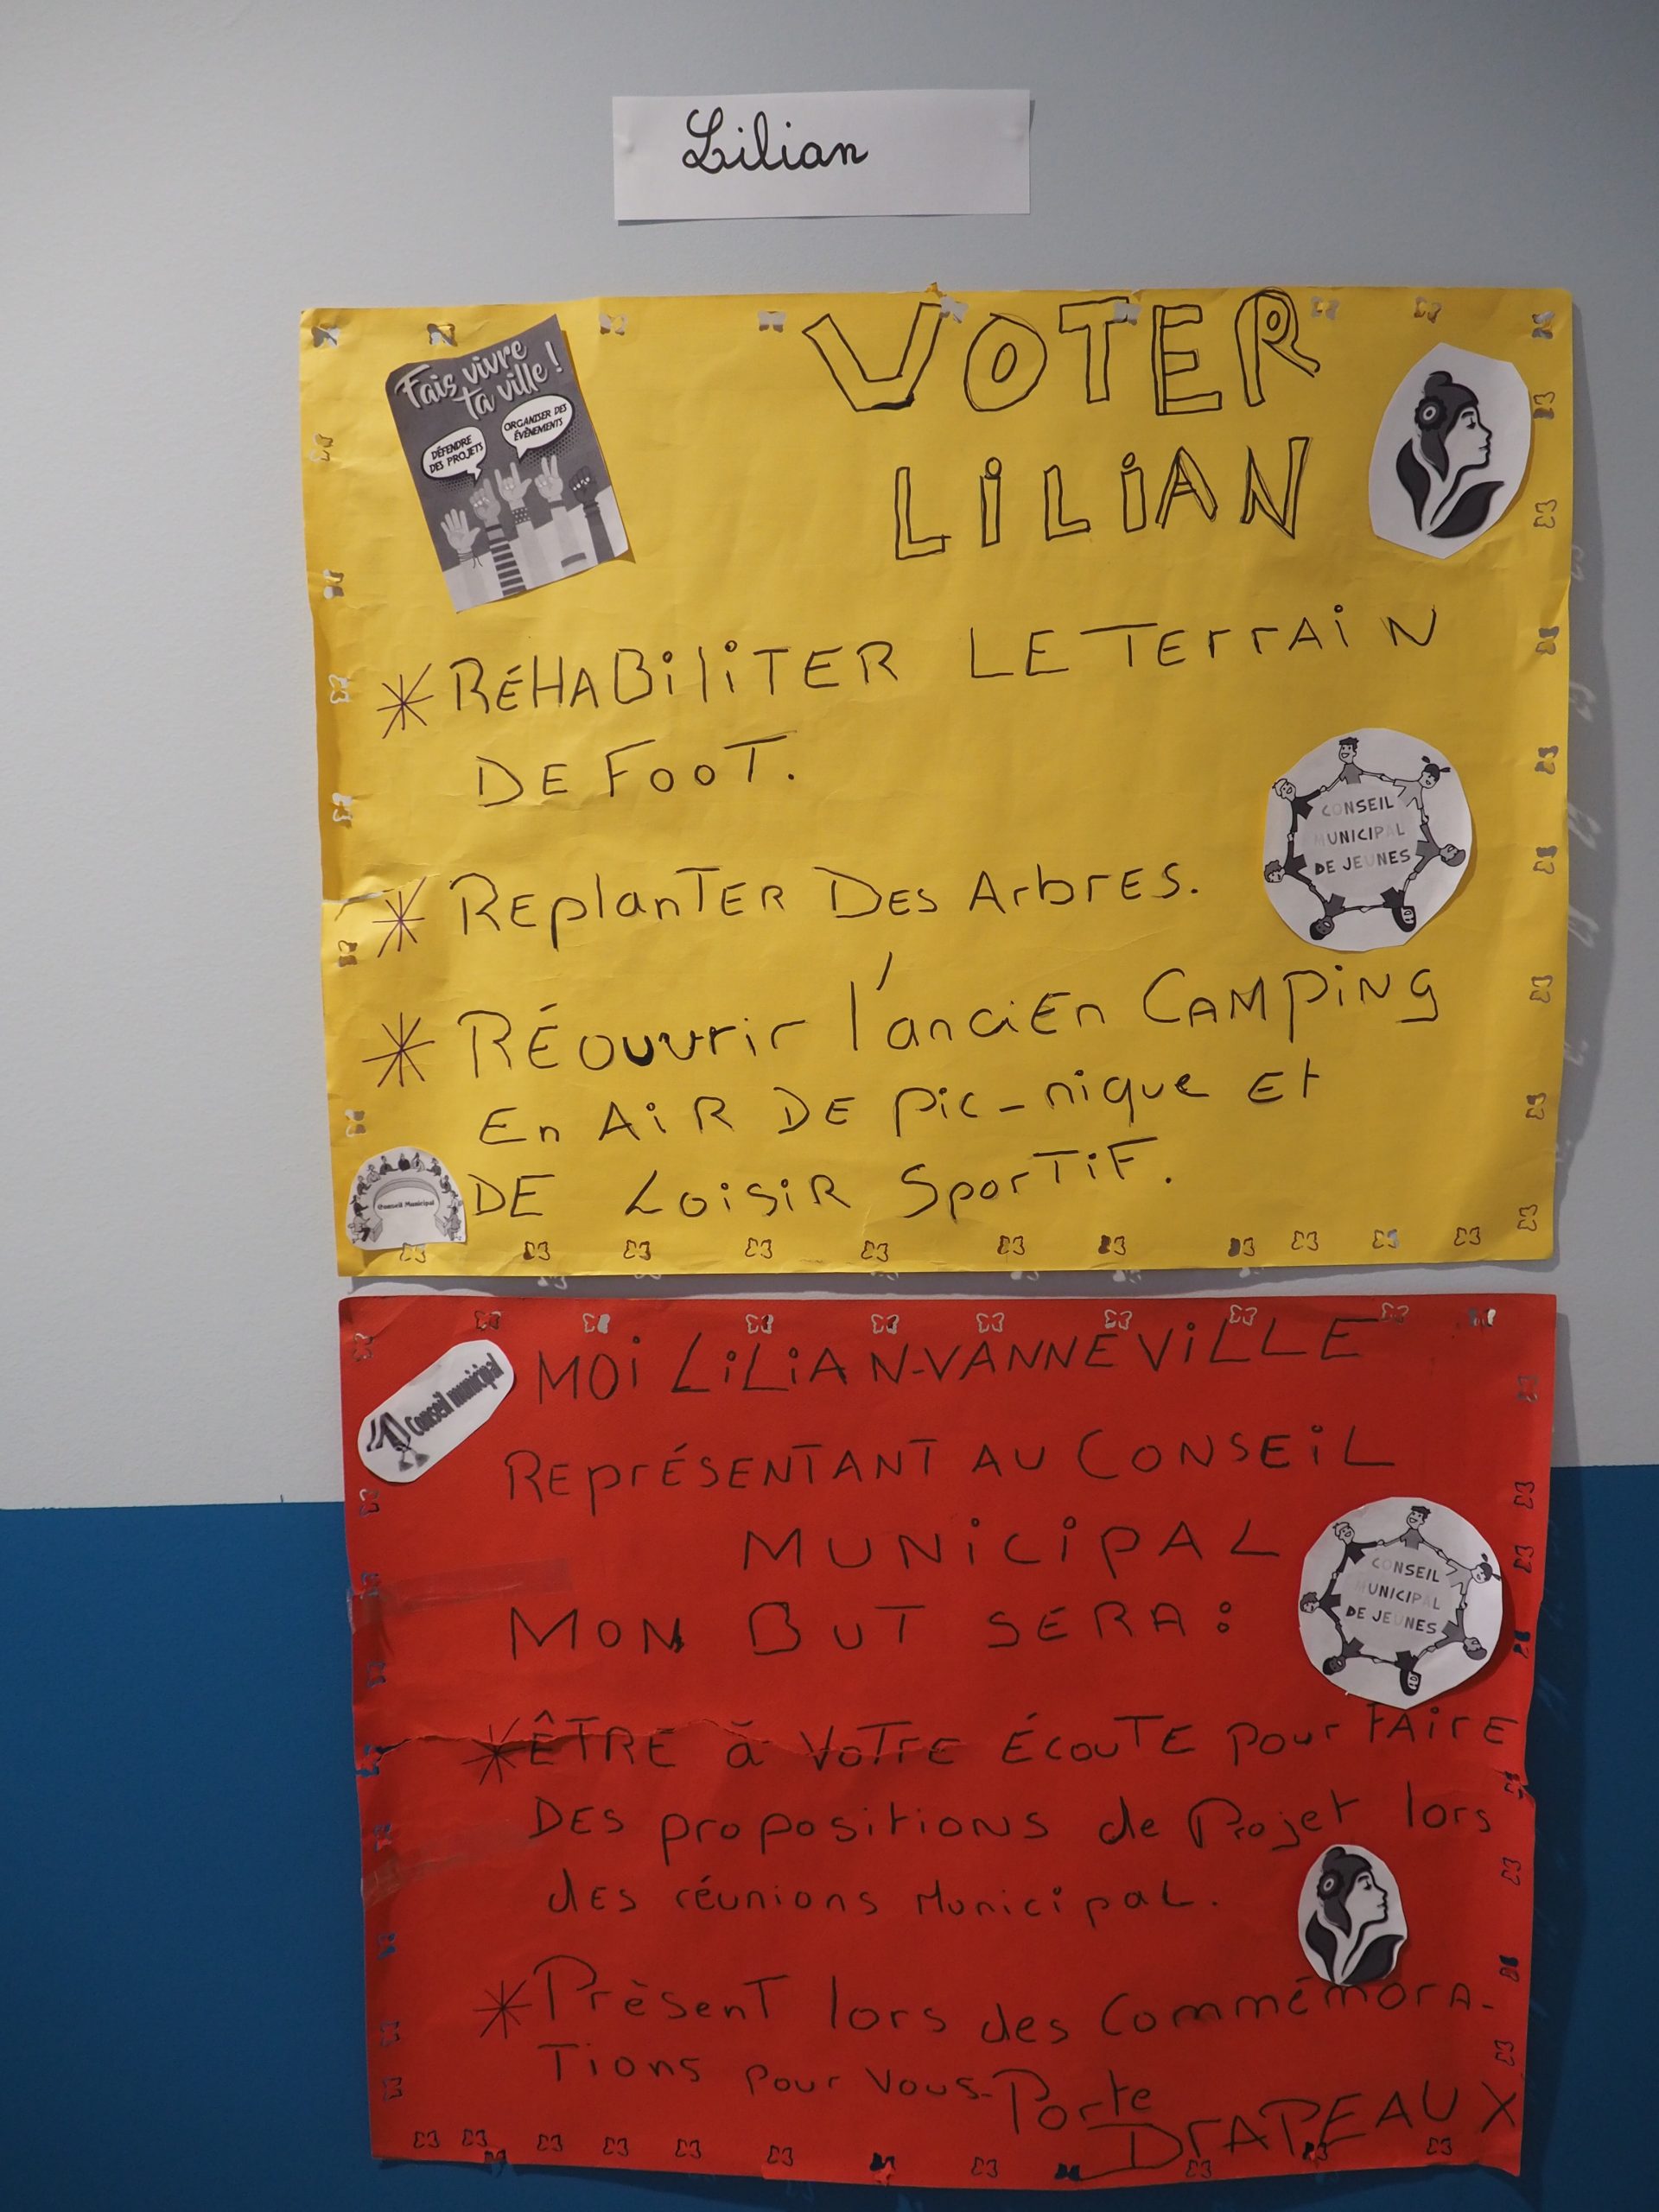 Lilian
Fais vivre
ta ville !
DÉFENDRE
DES PROJETS
ORGANISER DES
ÉVÈNEMENTS
VOTER
LILIAN
* RÉHABILITER LE TERRAIN
DE FOOT.
CONSEIL
MUNICIPAL
DE JEUNES
* REplanTER DES ArbrES.
* RÉOUVrir l'anciEn CAMPiNg
En AiR DE pic-nique Et
DE LoisiR SporTiF.
Conseil Municipal
Conseil municipal
MOi LiLiAN-VANNEViLLE
REprÉSENTANT AU CONSEiL
MUNiCiPAL
MON BUT SERA :
CONSEIL
MUNICIPAL
DE JEUNES
* ÊTRE à VoTrE ÉcouTE pour FAirE
DES propositioNS de Projet lors
dES réunions MunicipaL.
* PrèsenT lors des CommémorA-
Tions pour Vous- Porte
DrAPEAUX